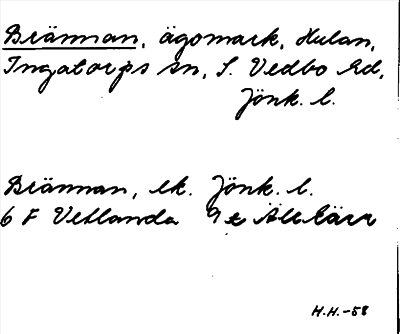 Brännan, ägomark, Hulan,
Ingatorps sn, S. Vedbo hd,
Jönk. l.
Brännan, ek. Jönk. l.
6 F Vetlanda 9 e
H.H.-58